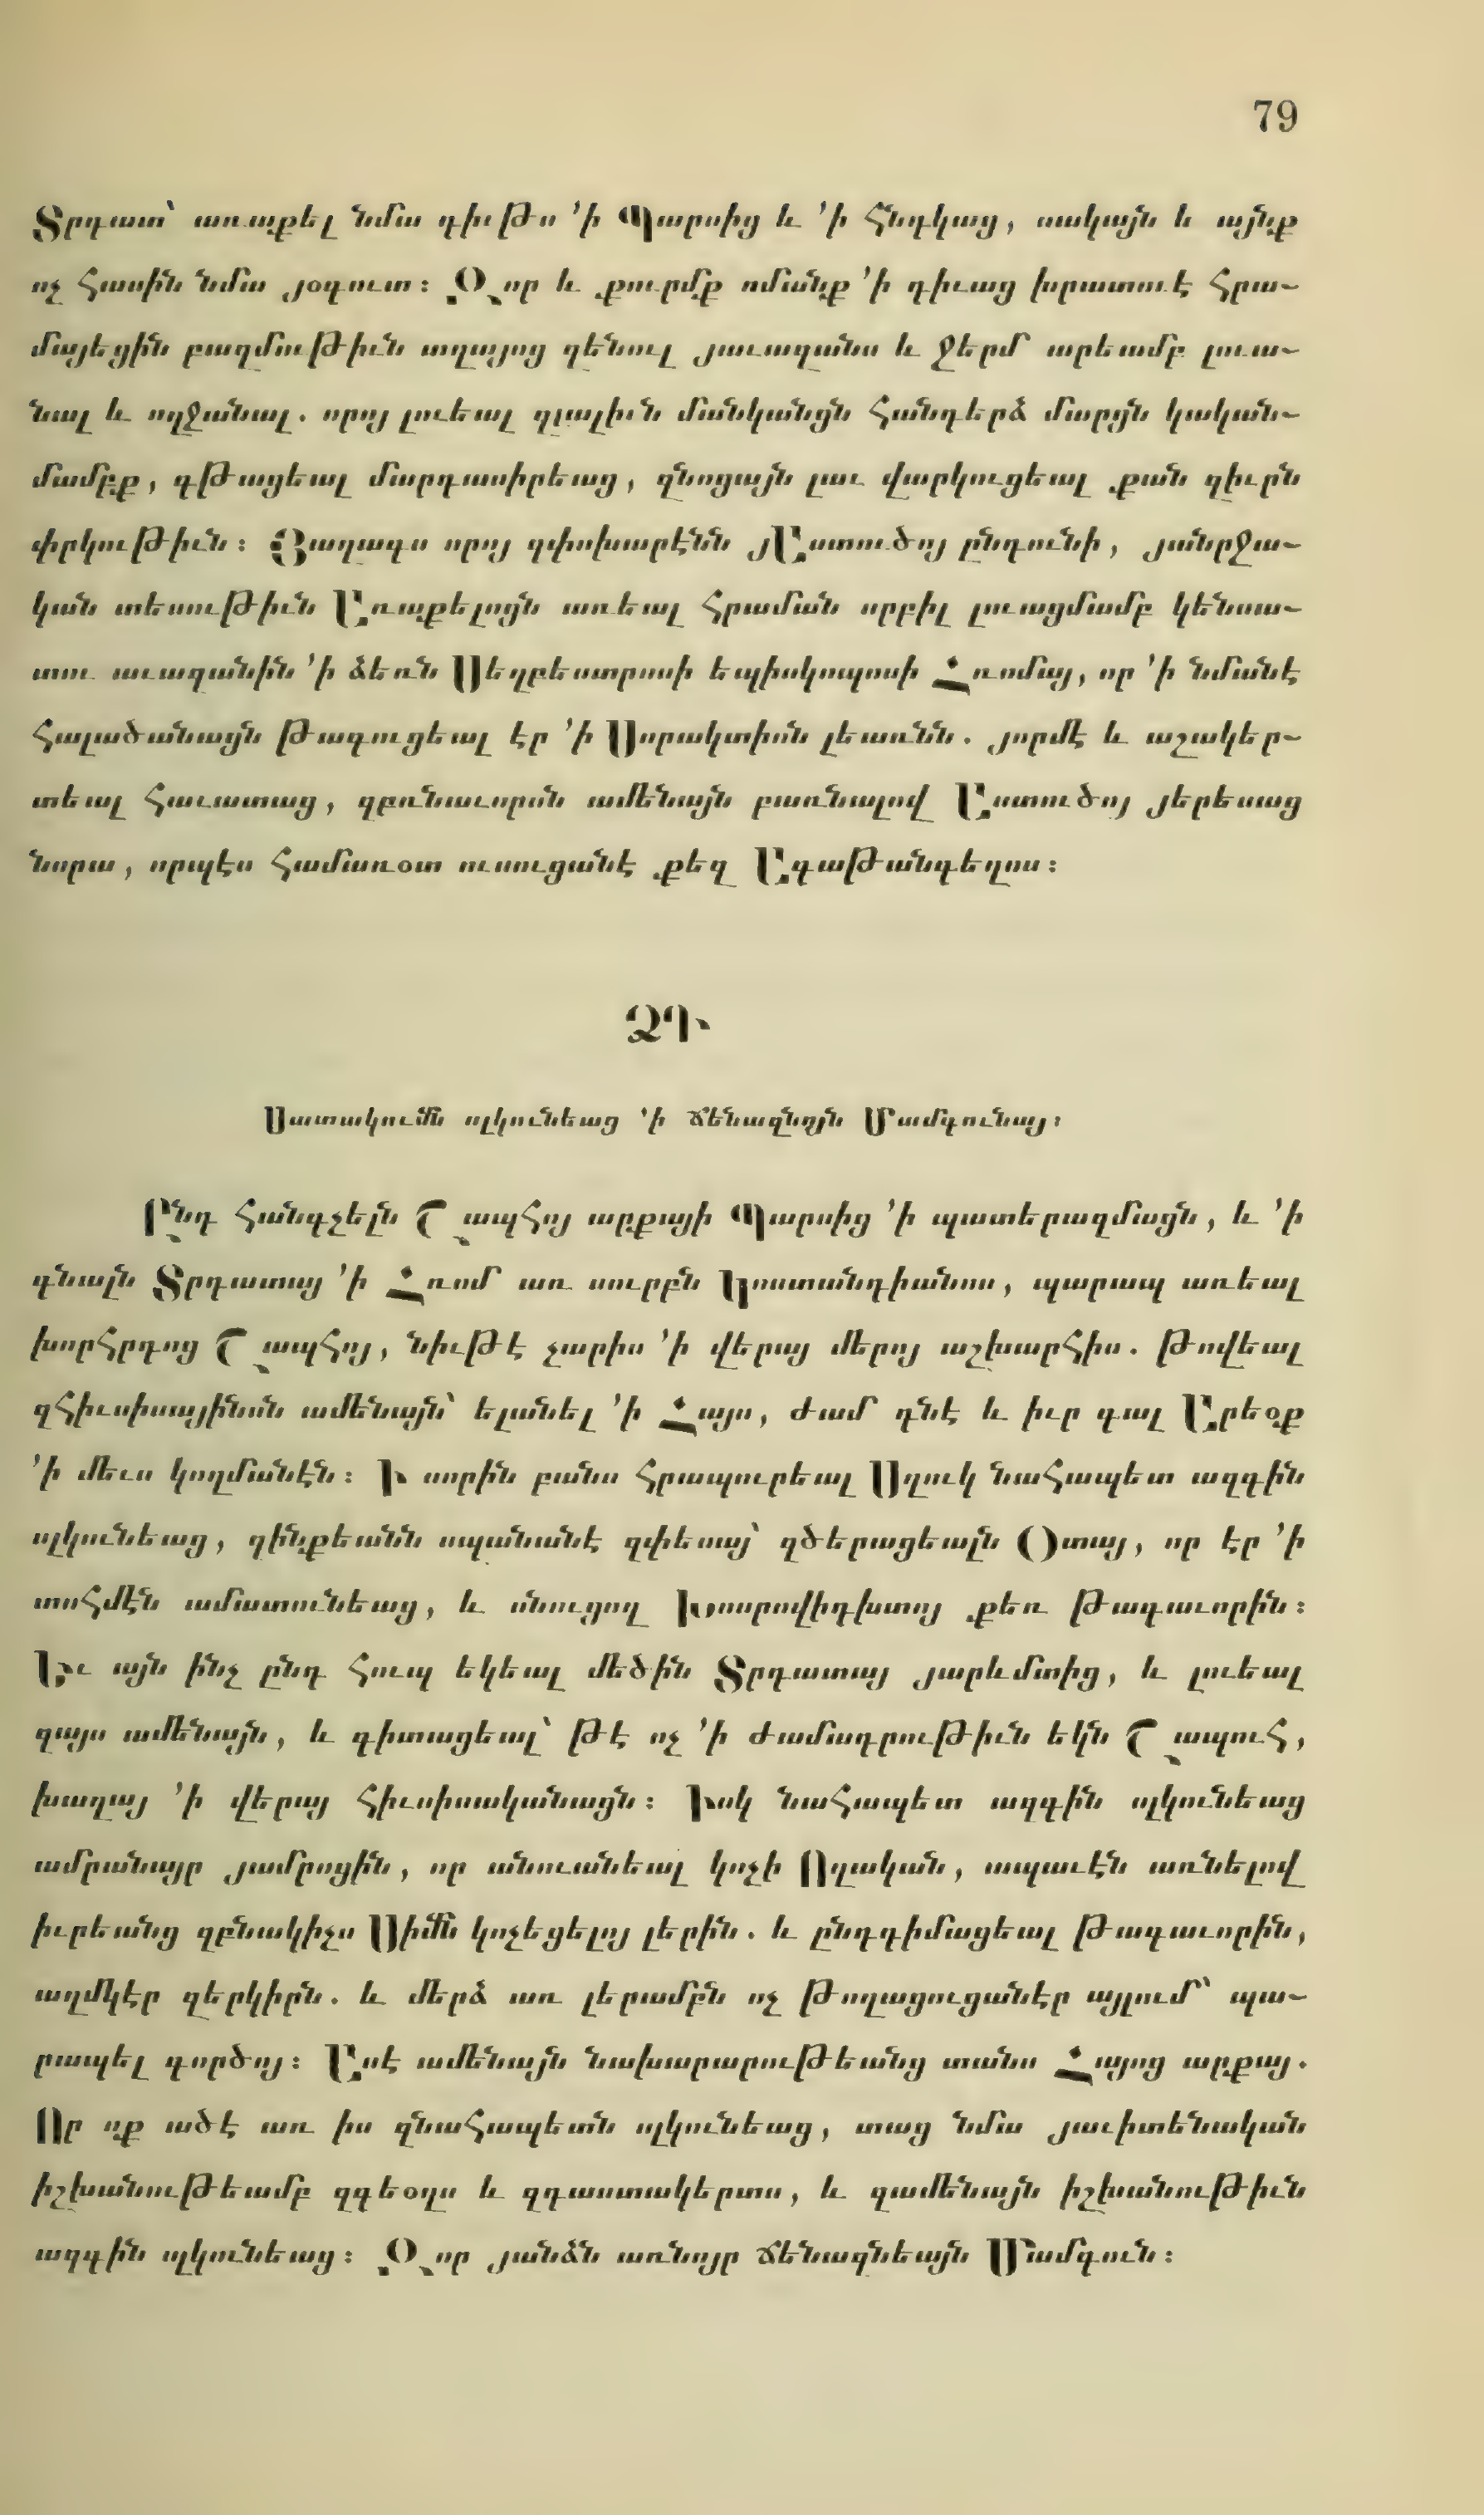 79
Տրդատ՝ առաքել նմա դիւթս ՚ի Պարսից և ՚ի Հնդկաց, սակայն և այնք
ոչ հասին նմա յօգուտ։ Զոր և քուրմք ոմանք ՚ի դիւաց խրատուէ հրա-
մայեցին բազմութիւն տղայոց զենուլ յաւազանս և ջերմ արեամբ լուա-
նալ և ողջանալ. որոյ լուեալ զլալիւն մանկանցն հանդերձ մարցն կական-
մամբք, գթացեալ մարդասիրեաց, զնոցայն լաւ վարկուցեալ քան զիւրն
փրկութիւն։ Յաղագս որոյ զփոխարէնն յԱստուծոյ ընդունի, յանրջա-
կան տեսութիւն Առաքելոցն առեալ հրաման սրբիլ լուացմամբ կենսա-
տու աւազանին ՚ի ձեռն Սեղբեստրոսի եպիսկոպոսի Հռոմայ, որ ՚ի նմանէ
հալածանացն թագուցեալ էր ՚ի Սորակտիոն լեառնն. յորմէ և աշակեր-
տեալ հաւատաց, զբռնաւորսն ամենայն բառնալով Աստուծոյ յերեսաց
նորա, որպէս համառօտ ուսուցանէ քեզ Ագաթանգեղոս։
ՁԴ
Սատակումն սլկունեաց ՚ի ճենազնոյն Մամգունայ։
Ընդ հանգչելն Շապհոյ արքայի Պարսից ՚ի պատերազմացն, և ՚ի
գնալն Տրդատայ ՚ի Հռոմ առ սուրբն Կոստանդիանոս, պարապ առեալ
խորհրդոց Շապհոյ, նիւթէ չարիս ՚ի վերայ մերոյ աշխարհիս. թովեալ
զհիւսիսայինսն ամենայն՝ ելանել ՚ի Հայս, ժամ դնէ և իւր գալ Արեօք
՚ի մեւս կողմանէն։ Ի սորին բանս հրապուրեալ Սղուկ նահապետ ազգին
սլկունեաց, զինքեանն սպանանէ զփեսայ՝ զծերացեալն Օտայ, որ էր ՚ի
տոհմէն ամատունեաց, և սնուցող Խոսրովիդխտոյ քեռ թագաւորին։
Եւ այն ինչ ընդ հուպ եկեալ մեծին Տրդատայ յարևմտից, և լուեալ
զայս ամենայն, և գիտացեալ՝ թէ ոչ ՚ի ժամադրութիւն եկն Շապուհ,
խաղայ ՚ի վերայ հիւսիսականացն։ Իսկ նահապետ ազգին սլկունեաց
ամրանայր յամրոցին, որ անուանեալ կոչի Ողական, ապաւէն առնելով
իւրեանց զբնակիչս Սիմն կոչեցելոյ լերին. և ընդդիմացեալ թագաւորին,
աղմկէր զերկիրն. և մերձ առ լերամբն ոչ թողացուցանէր այլում՝ պա-
րապել գործոյ։ Ասէ ամենայն նախարարութեանց տանս Հայոց արքայ.
Որ ոք ածէ առ իս զնահապետն սլկունեաց, տաց նմա յաւիտենական
իշխանութեամբ զգեօղս և զդաստակերտս, և զամենայն իշխանութիւն
ազգին սլկունեաց։ Զոր յանձն առնոյր ճենազնեայն Մամգուն։